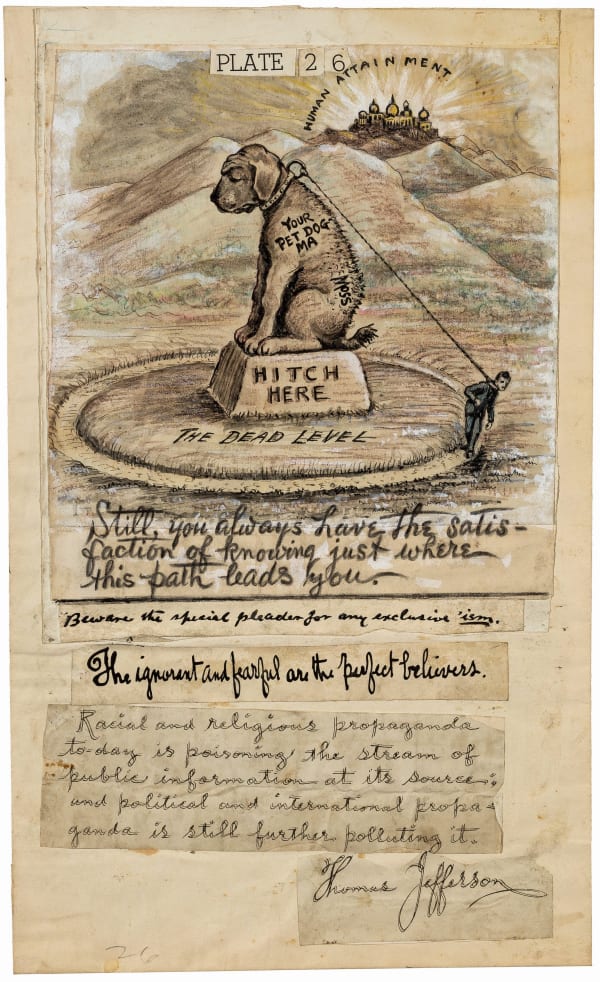 PLATE 26
HUMAN ATTAINMENT
YOUR
PET DOG
MA
MOSS
HITCH
HERE
THE DEAD LEVEL
Still, you always have the satis-
faction of knowing just where
this path leads you.-
Beware the special pleader for any exclusive 'ism.
The ignorant and fearful are the perfect believers.
Racial and religious propaganda
to-day is poisoning the stream of
public information at its source;
and political and international propa-
ganda is still further polluting it.
Thomas Jefferson
26